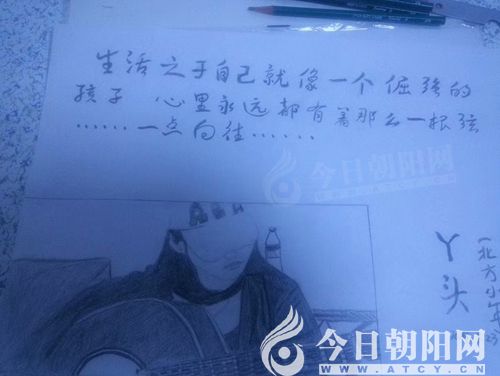 生活之于自己就像一个倔强的
孩子 心里永远都有着那么一根弦
……一点向往……
丫头
(北方少年
今日朝阳网
WWW.ATCY.CN
今日朝阳网
WWW.ATCY.CN